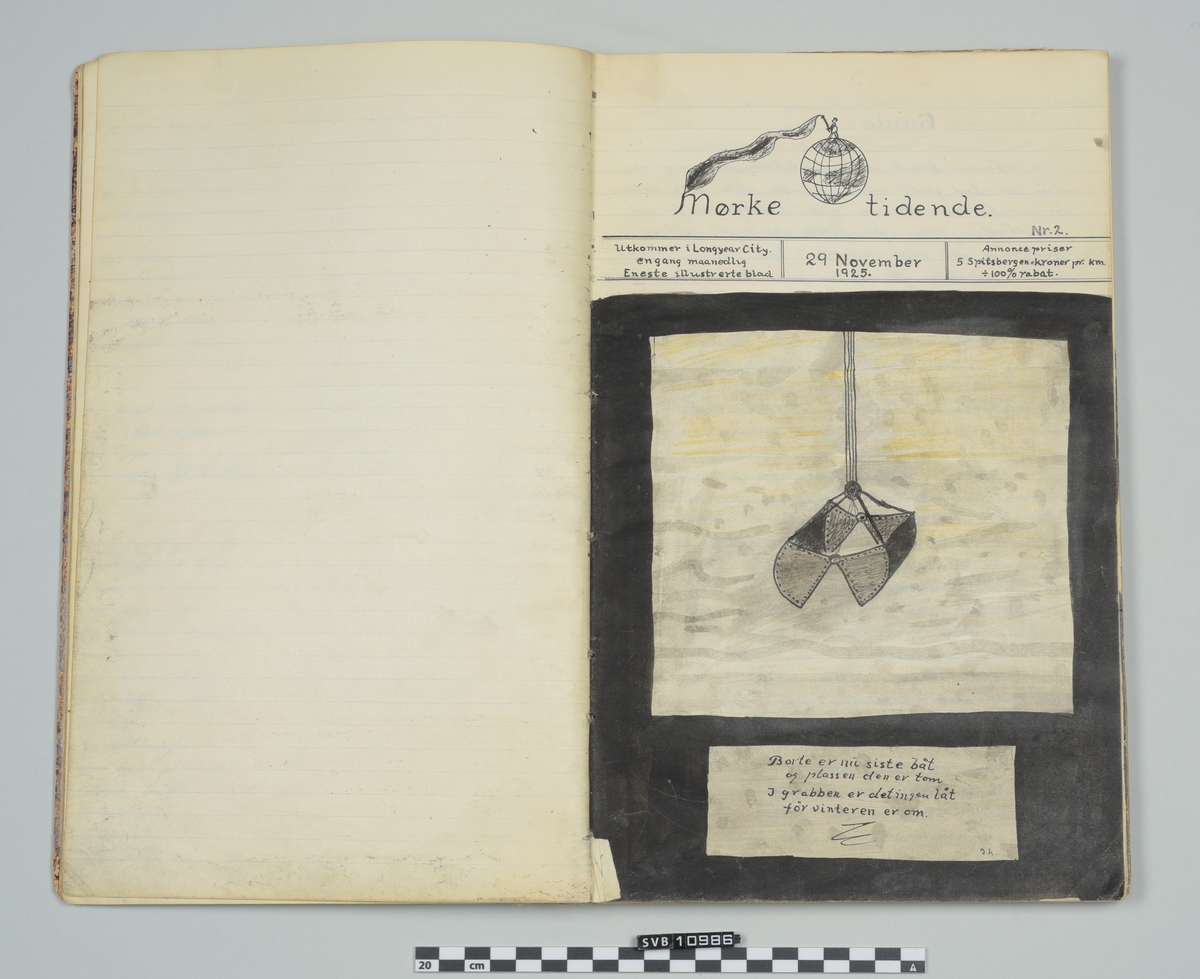 Mørke tidende.
Nr. 2.
Utkommer i Longyear City.
en gang maanedlig
Eneste illustrerte blad
29 November
1925.
Annonce priser
5 Spitsbergen-kroner pr. km.
÷ 100% rabat.
Borte er nu siste båt
og plassen den er tom
I grabben er det ingen låt
før vinteren er om.
SVB 10986
20 cm